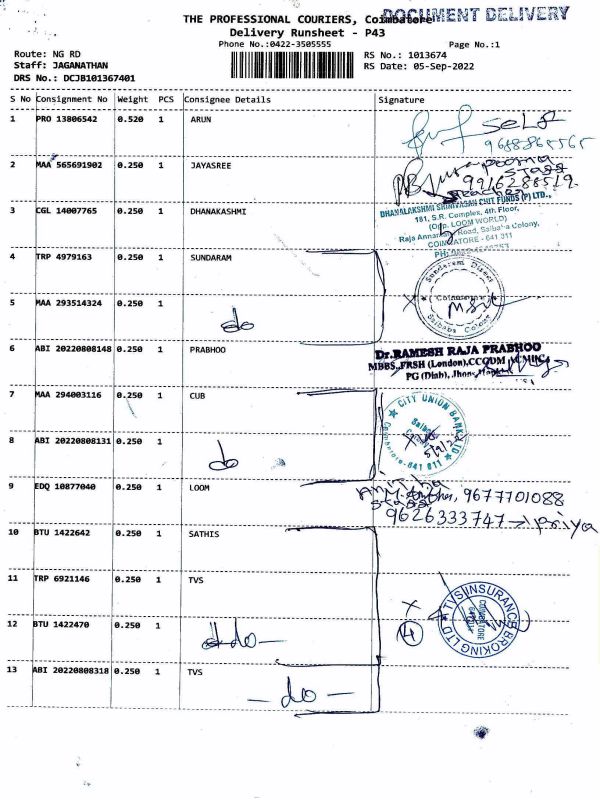 DOCUMENT DELIVERY
THE PROFESSIONAL COURIERS, Coimbatore
Delivery Runsheet - P43
Phone No.:0422-3505555 Page No.:1
Route: NG RD RS No.: 1013674
Staff: JAGANATHAN RS Date: 05-Sep-2022
DRS No.: DCJB101367401
S No Consignment No Weight PCS Consignee Details Signature
1 PRO 13806542 0.520 1 ARUN
Self
2 MAA 565691902 0.250 1 JAYASREE
Staff
3 CGL 14007765 0.250 1 DHANAKASHMI
DHANALAKSHMI SRINIVASAN CHIT FUNDS (P) LTD.,
181, S.R. Complex, 4th Floor,
(Opp. LOOM WORLD)
Road, Saibaba Colony,
COIMBATORE - 641 011
4 TRP 4979163 0.250 1 SUNDARAM
Saibaba Colony
5 MAA 293514324 0.250 1
do
6 ABI 20220808148 0.250 1 PRABHOO
Dr.RAMESH RAJA PRABHOO
MBBS.,FRSH (London),CCGDM
PG (Diab),
7 MAA 294003116 0.250 1 CUB
CITY UNION BANK LTD
Coimbatore-641 011
8 ABI 20220808131 0.250 1
do
9 EDQ 10877040 0.250 1 LOOM
9677701088
9626333747 → Priya
10 BTU 1422642 0.250 1 SATHIS
11 TRP 6921146 0.250 1 TVS
TVS INSURANCE BROKING LTD
COIMBATORE
12 BTU 1422470 0.250 1
do
13 ABI 20220808318 0.250 1 TVS
- do -